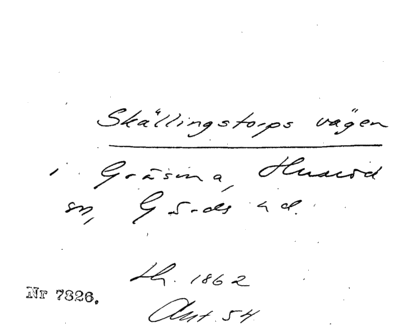 Skällingstorps vägen
i Gräsma, Husaröd
sn, Gärds hd.
th. 1862
Nr 7326.
Aut. 54